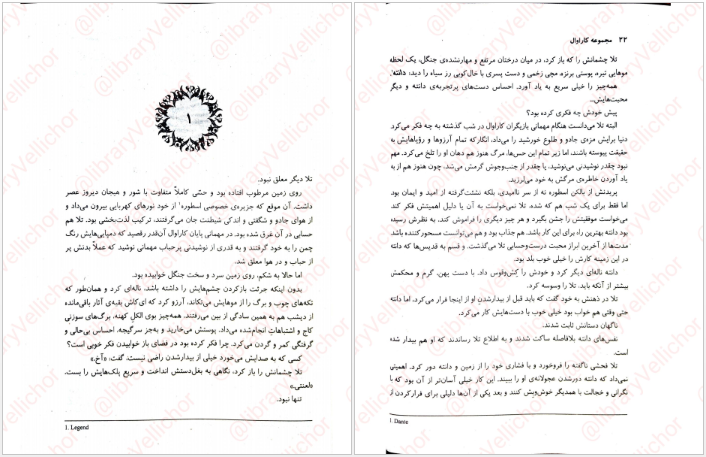 ۱
تلا دیگر معلق نبود.
روی زمین مرطوب افتاده بود و حسّی کاملاً متفاوت با شور و هیجان دیروز عصر
داشت. آن موقع که جزیره‌ی خصوصی اسطوره¹ از خود نورهای کهربایی بیرون می‌داد و
از هوای جادو و شگفتی و اندکی شیطنت جان می‌گرفتند. ترکیب لذت‌بخشی بود. تلا هم
حسابی در آن غرق شده بود. در مهمانی پایان کاراوال آن‌قدر رقصید که دمپایی‌هایش رنگ
چمن را به خود گرفتند و به قدری از نوشیدنی پرحباب مهمانی نوشید که عملاً بدنش پر
از حباب و در هوا معلق شد.
اما حالا به شکم، روی زمین سرد و سخت جنگل خوابیده بود.
بدون اینکه جرئت بازکردن چشم‌هایش را داشته باشد، ناله‌ای کرد و همان‌طور که
تکه‌های چوب و برگ را از موهایش می‌تکاند، آرزو کرد که ای‌کاش بقیه‌ی آثار باقی‌مانده
از دیشب هم به همین سادگی از بین می‌رفتند. همه‌چیز بوی الکل کهنه، برگ‌های سوزنی
کاج و اشتباهات انجام‌شده می‌داد. پوستش می‌خارید و به‌جز سرگیجه، احساس بی‌حالی و
گرفتگی کمر و گردن می‌کرد. چرا فکر کرده بود در فضای باز خوابیدن فکر خوبی است؟
کسی که به صدایش می‌خورد خیلی از بیدارشدن راضی نیست، گفت: «آخ.»
تلا چشمانش را باز کرد، نگاهی به بغل‌دستش انداخت و سریع پلک‌هایش را بست.
«لعنتی.»
تنها نبود.
1. Legend
۲۲ مجموعه کاراوال
تلا چشمانش را که باز کرد، در میان درختان مرتفع و مهارنشده‌ی جنگل، یک لحظه
موهایی تیره، پوستی برنزه، مچی زخمی و دست پسری با خال‌کوبی رز سیاه را دید: دانته¹.
همه‌چیز را خیلی سریع به یاد آورد. احساس دست‌های پرتجربه‌ی دانته و دیگر
محبت‌هایش...
پیش خودش چه فکری کرده بود؟
البته تلا می‌دانست هنگام مهمانی بازیگران کاراوال در شب گذشته به چه فکر می‌کرد.
دنیا برایش مزه‌ی جادو و طلوع خورشید را می‌داد، انگار که تمام آرزوها و رؤیاهایش به
حقیقت پیوسته باشند، اما زیر تمام این حس‌ها، مرگ هنوز هم دهان او را تلخ می‌کرد. مهم
نبود چقدر نوشیدنی می‌نوشید، یا چقدر از جنب‌وجوش گرمش می‌شد، چون هنوز هم از به
یاد آوردن خاطره‌ی مرگش به خود می‌لرزید.
پریدنش از بالکن اسطوره نه از سر ناامیدی، بلکه نشئت‌گرفته از امید و ایمان بود
اما فقط برای یک شب هم که شده، تلا نمی‌خواست به آن یا دلیل اهمیتش فکر کند.
می‌خواست موفقیتش را جشن بگیرد و هر چیز دیگری را فراموش کند. به نظرش رسیده
بود دانته بهترین راه برای این کار باشد. هم جذاب بود و هم می‌توانست مسحورکننده باشد.
مدت‌ها از آخرین ابراز محبت درست‌وحسابی تلا می‌گذشت. و قسم به قدیس‌ها که دانته
در این زمینه کارش را خیلی خوب بلد بود.
دانته ناله‌ای دیگر کرد و خودش را کش‌وقوس داد. با دست پهن، گرم و محکمش
بیشتر از آنکه باید، تلا را وسوسه کرد.
تلا در ذهنش به خود گفت که باید قبل از بیدارشدن او از اینجا فرار می‌کرد، اما دانته
حتی وقتی هم خواب بود خیلی خوب با دست‌هایش کار می‌کرد.
ناگهان دستانش ثابت شدند.
نفس‌های دانته بلافاصله ساکت شدند و به اطلاع تلا رساندند که او هم بیدار شده
است.
تلا فحشی ناگفته را فروخورد و با فشاری خود را از زمین و دانته دور کرد. اهمیتی
نمی‌داد که دانته دورشدن عجولانه‌ی او را ببیند. این کار خیلی آسان‌تر از آن بود که با
نگرانی و خجالت با همدیگر خوش‌وبش کنند و بعد یکی از آن‌ها دلیلی برای فرارکردن از
1. Dante
@libraryVellichor